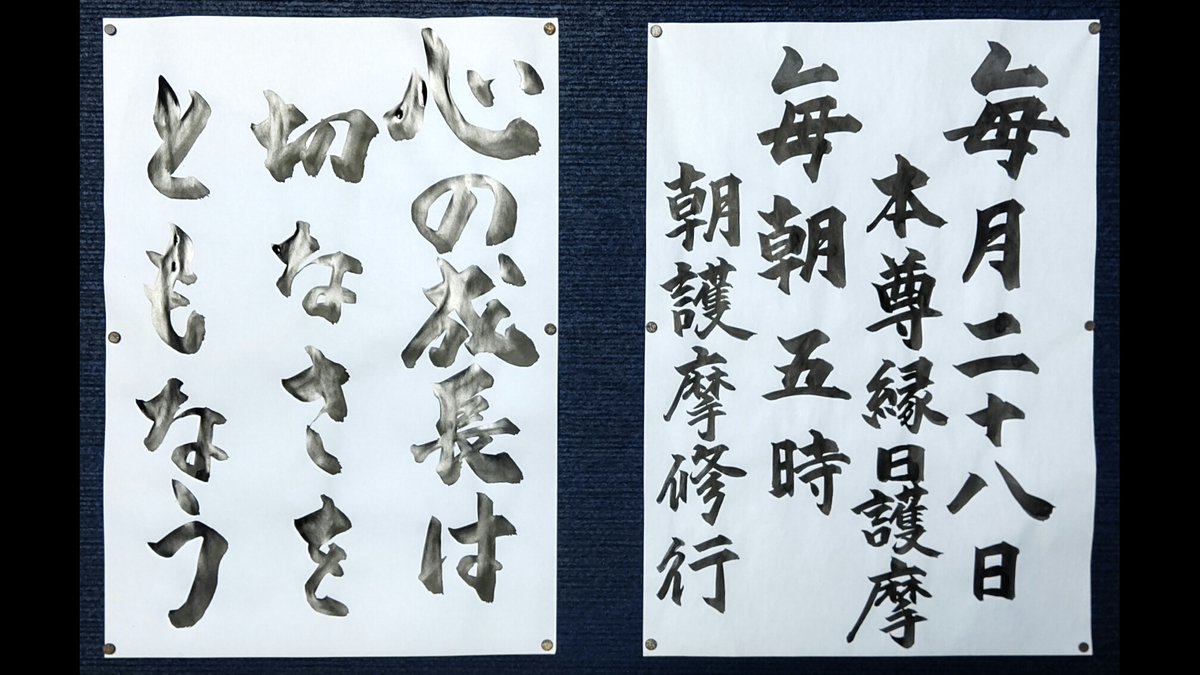 毎月二十八日
本尊縁日護摩
毎朝五時
朝護摩修行
心の成長は
切なさを
ともなう